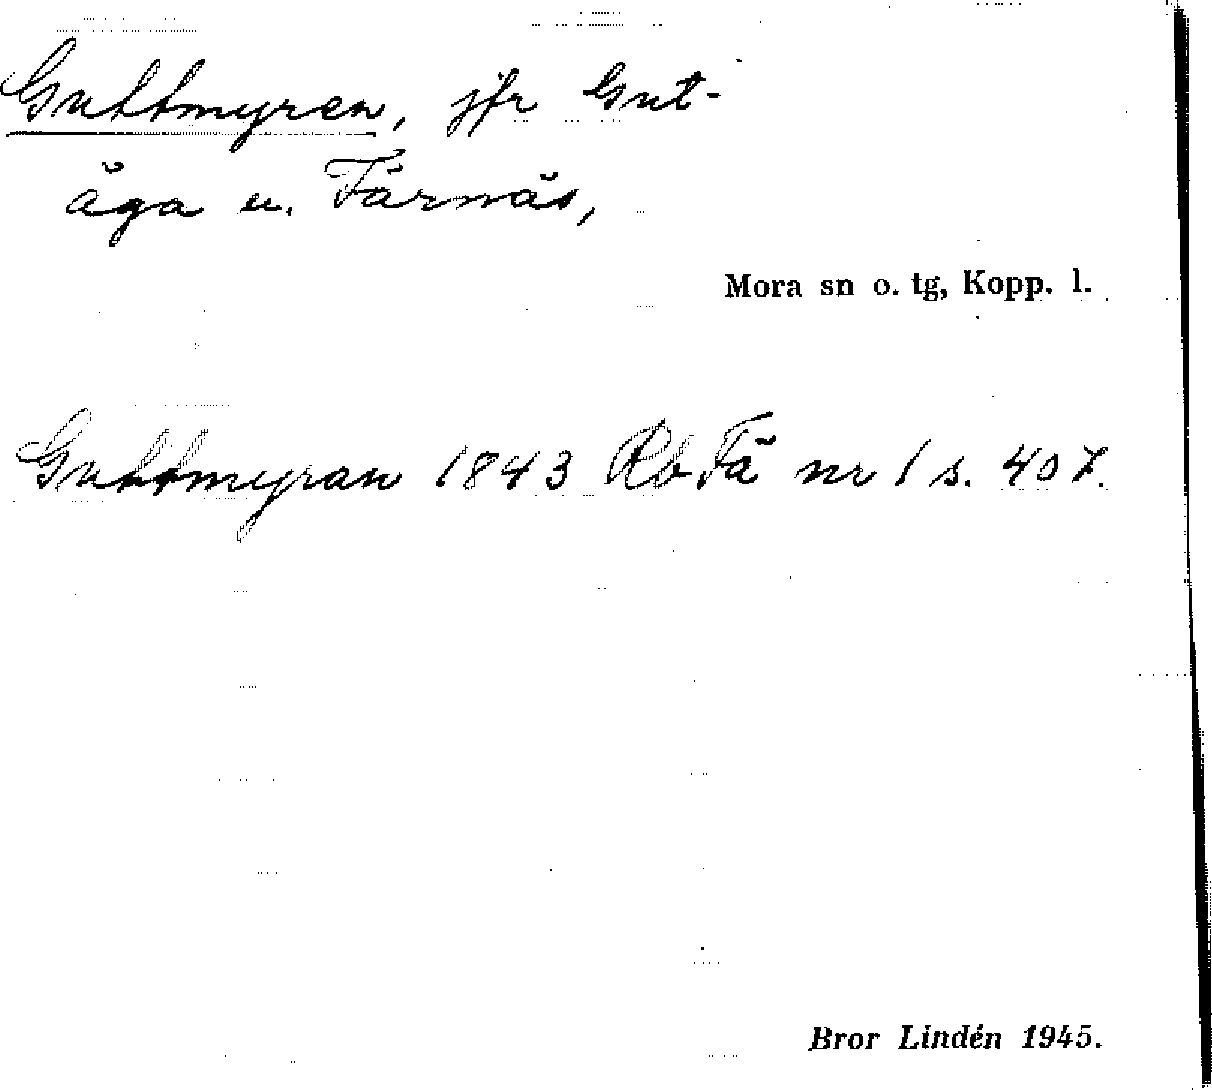 Guttmyren, jfr Gut-
åga u. Färnäs,
Mora sn o. tg, Kopp. l.
Guttmyran 1843 Rb Fä nr 1 s. 407.
Bror Lindén 1945.